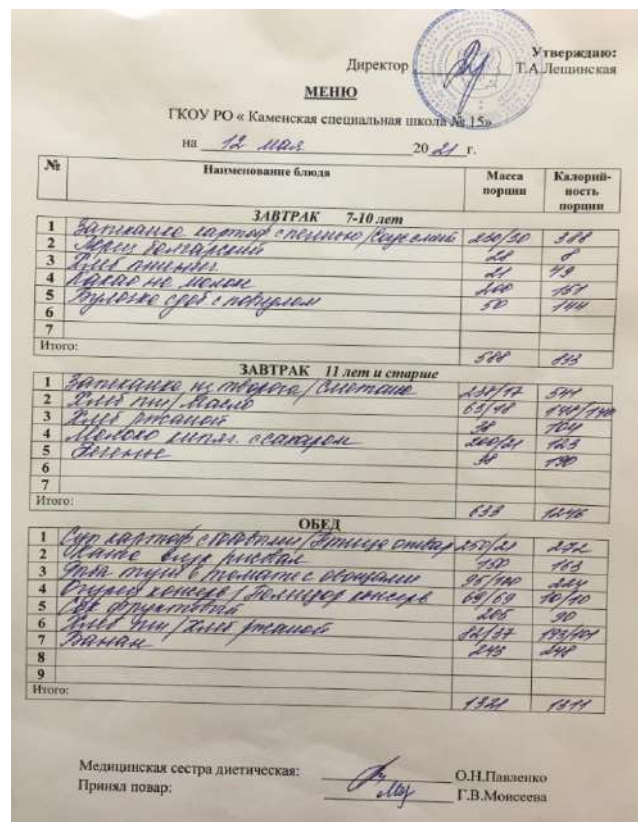 Утверждаю:
Директор Т.А.Лещинская
МЕНЮ
ГКОУ РО « Каменская специальная школа № 15»
на 12 мая 20 21 г.
№ Наименование блюда Масса порции Калорий-ность порции
ЗАВТРАК 7-10 лет
1 Запеканка картоф с печенью / Соус смет 388
2 Перец болгарский 28 8
3 Хлеб пшенич. 21 49
4 Какао на молоке 200 151
5 Булочка сдоб с повидлом 50 144
6
7
Итого: 588
ЗАВТРАК 11 лет и старше
1 Запеканка из творога / Сметана 541
2 Хлеб пш / Масло
3 Хлеб ржаной 38 104
4 Молоко кипяч. с сахаром 200/21 123
5 Печенье 38 190
6
7
Итого: 633 1246
ОБЕД
1 Суп картоф с бобовыми / Птица отвар 250/21 272
2 Каша рисовая 150 163
3 Рыба туш в томате с овощами 95/100 224
4 Огурец консерв / Помидор консерв 69/69 10/10
5 Сок фруктовый 205 90
6 Хлеб пш / Хлеб ржаной 82/37
7 Банан 243 248
8
9
Итого: 1321 1311
Медицинская сестра диетическая: О.Н.Павленко
Принял повар: Г.В.Моисеева